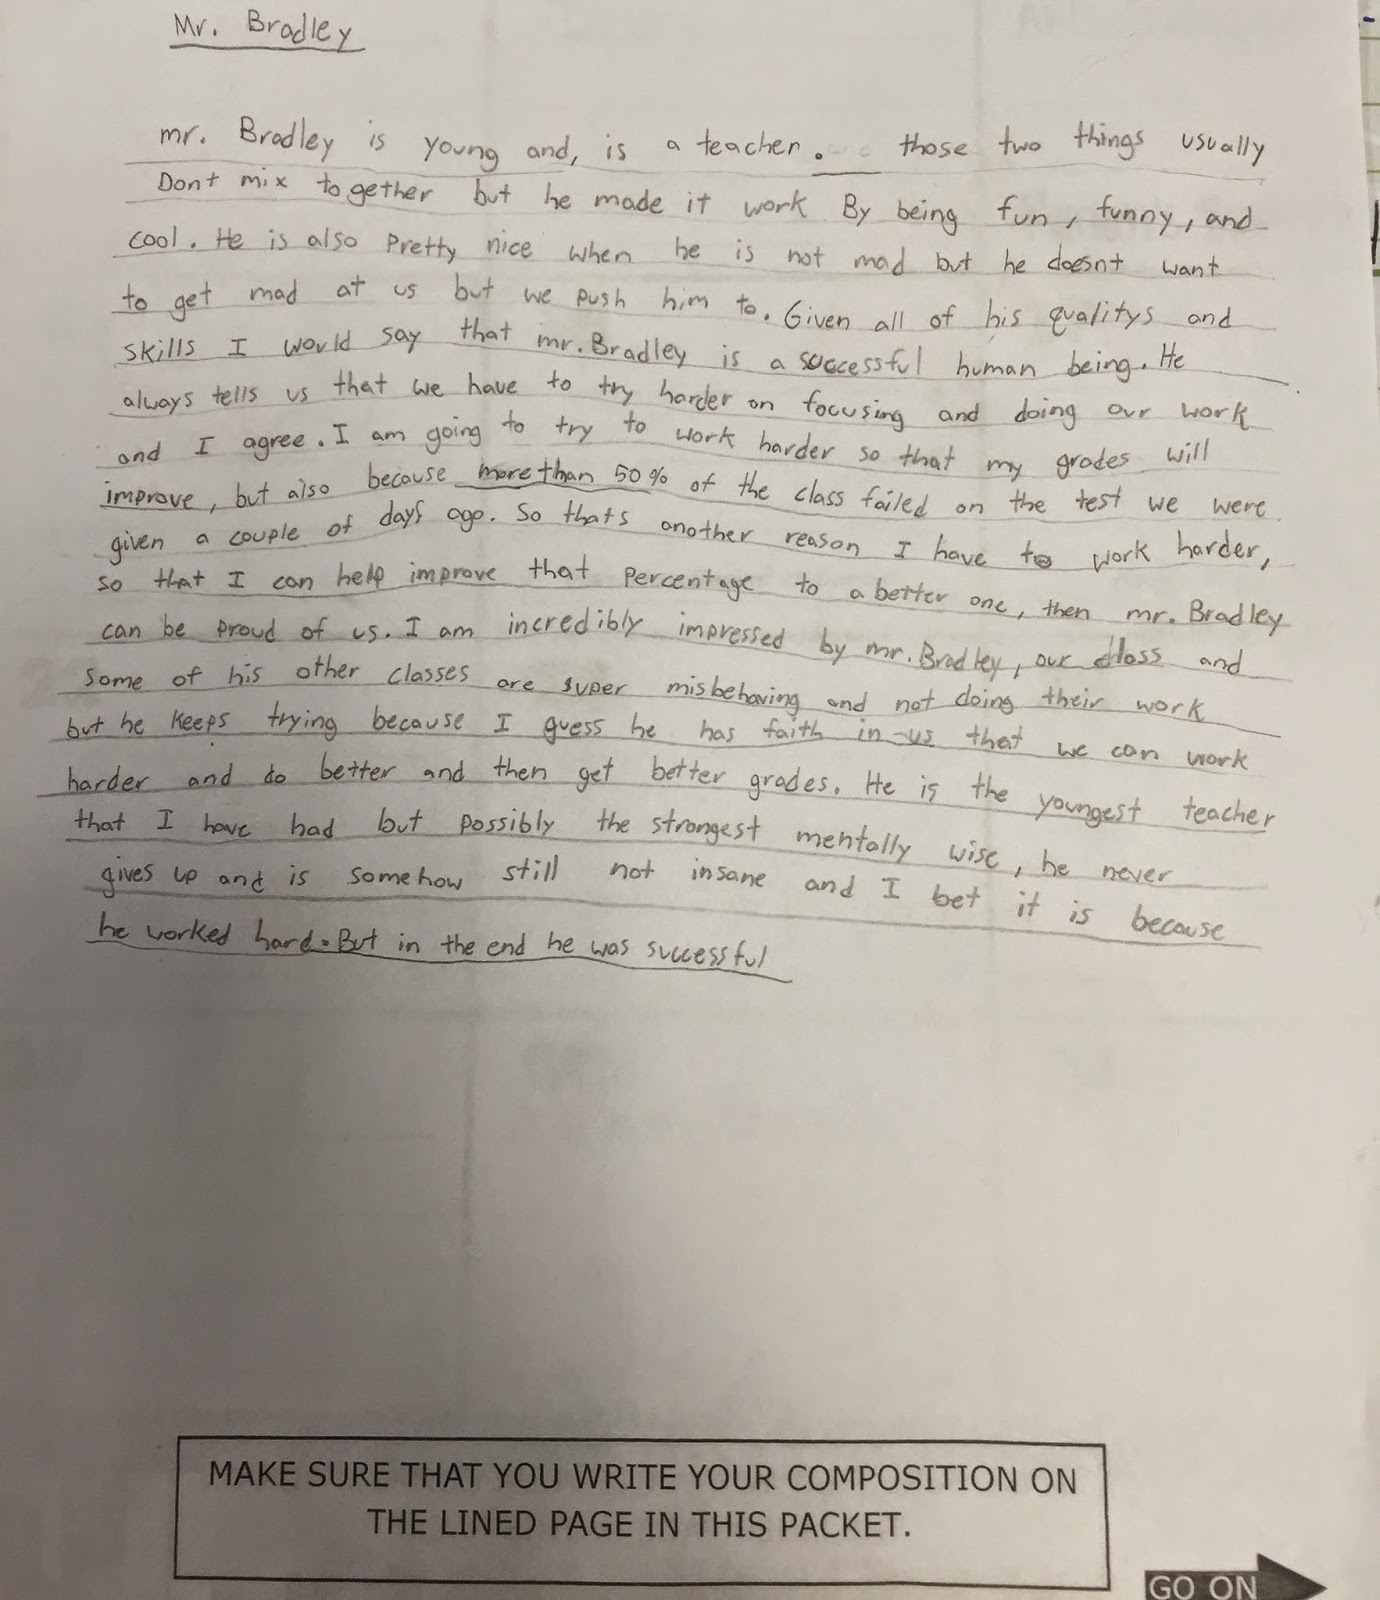 Mr. Bradley
mr. Bradley is young and, is a teacher. those two things usually
Dont mix together but he made it work By being fun, funny, and
cool. He is also Pretty nice when he is not mad but he doesnt want
to get mad at us but we push him to. Given all of his qualitys and
skills I would say that mr. Bradley is a successful human being. He
always tells us that we have to try harder on focusing and doing our work
and I agree. I am going to try to work harder so that my grades will
improve, but also because more than 50% of the class failed on the test we were
given a couple of days ago. So thats another reason I have to work harder,
so that I can help improve that percentage to a better one, then mr. Bradley
can be proud of us. I am incredibly impressed by mr. Bradley, our class and
some of his other classes are super misbehaving and not doing their work
but he keeps trying because I guess he has faith in us that we can work
harder and do better and then get better grades. He is the youngest teacher
that I have had but possibly the strongest mentally wise, he never
gives up and is somehow still not insane and I bet it is because
he worked hard. But in the end he was successful
MAKE SURE THAT YOU WRITE YOUR COMPOSITION ON
THE LINED PAGE IN THIS PACKET.
GO ON